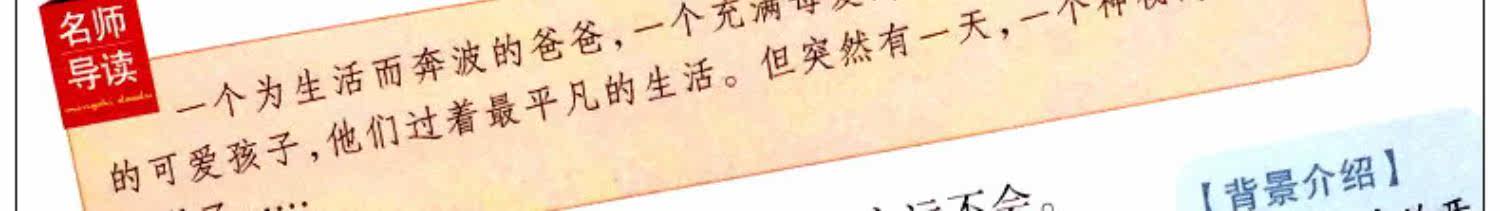 名师
导读
mingshi daodu
一个为生活而奔波的爸爸，一个充满母爱
的可爱孩子，他们过着最平凡的生活。但突然有一天，一个神秘
……
不会。
【背景介绍】